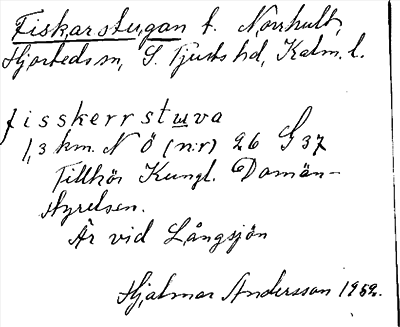 Fiskarstugan t. Norrhult,
Hjorteds sn, S. Tjusts hd, Kalm. l.
fisskerrstuva
1,3 km. N Ö (n:r) 26 G 37
Tillhör Kungl. Domän-
styrelsen.
Är vid Långsjön
Hjalmar Andersson 1959.